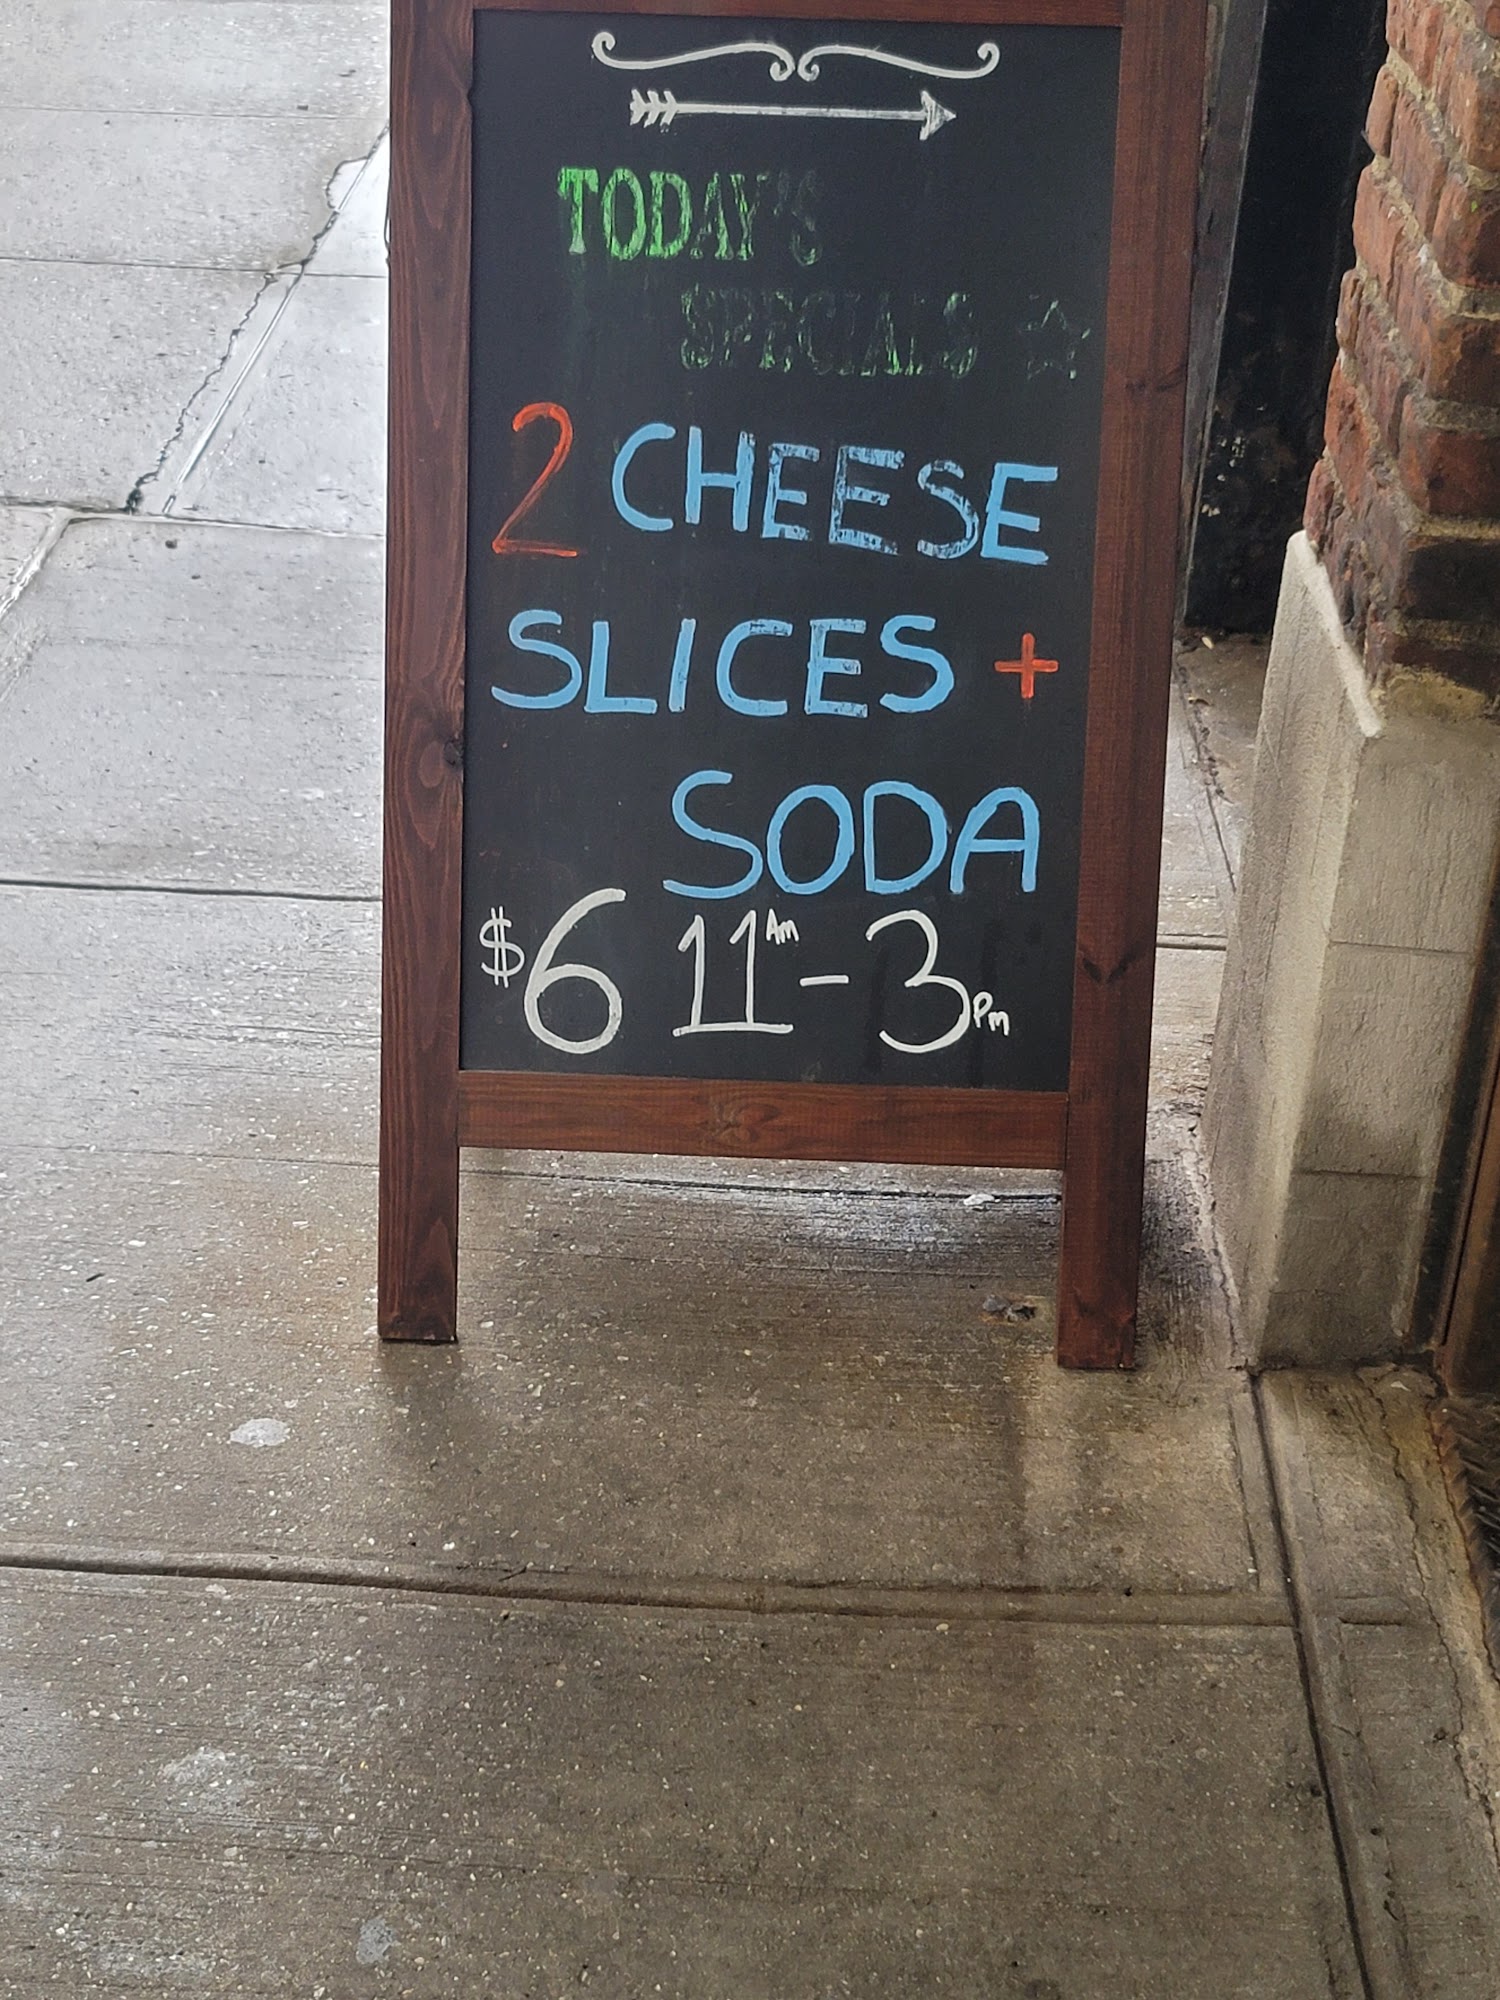 TODAY'S
SPECIALS
2 CHEESE
SLICES +
SODA
$6 11Am - 3Pm